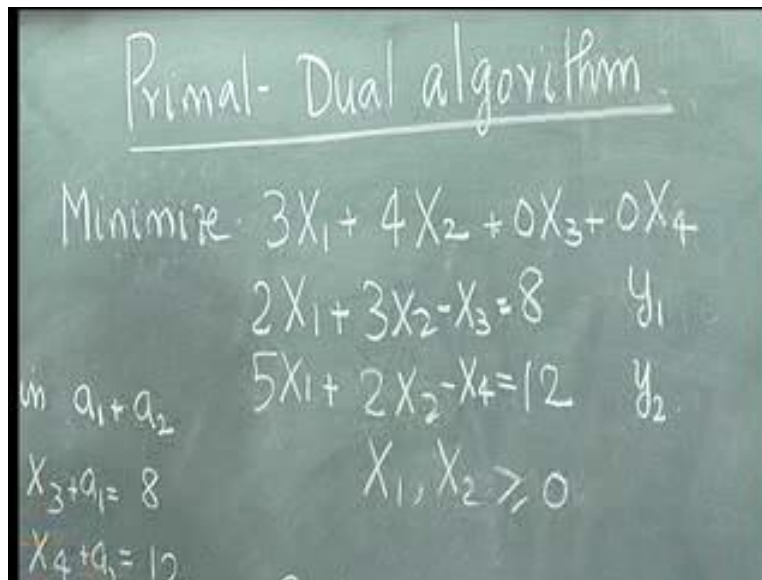 Primal-Dual algorithm
Minimize 3X₁ + 4X₂ + 0X₃ + 0X₄
2X₁ + 3X₂ - X₃ = 8 y₁
5X₁ + 2X₂ - X₄ = 12 y₂
X₁, X₂ ≥ 0
in a₁ + a₂
X₃ + a₁ = 8
X₄ + a₂ = 12